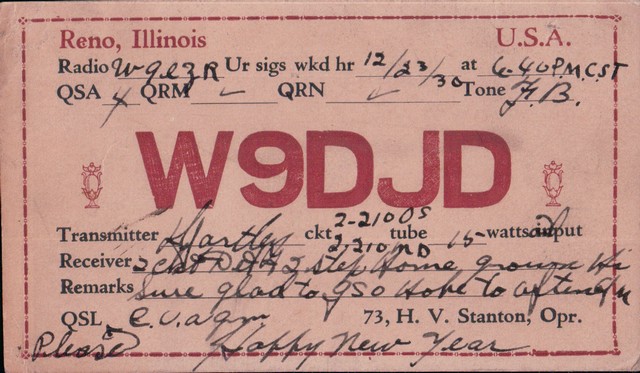 Reno, Illinois U.S.A.
Radio W9EZR Ur sigs wkd hr 12/23/30 at 6.40 P.M. CST
QSA 4 QRM QRN Tone F.B.
W9DJD
2-210 DS
Transmitter Hartley ckt tube 15 watts input
2-210 MD
Receiver 2 step Home grown Hi
Remarks Sure glad to QSO Hope to often
QSL C.U.agn 73, H. V. Stanton, Opr.
Please Happy New Year